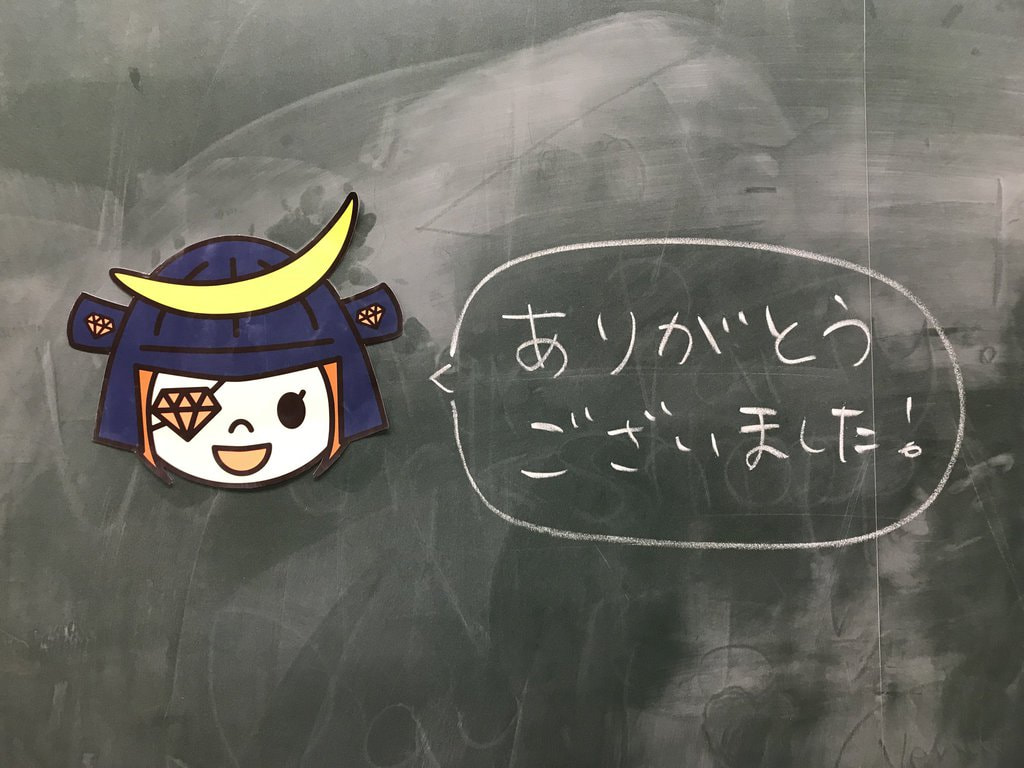 ありがとう
ございました!